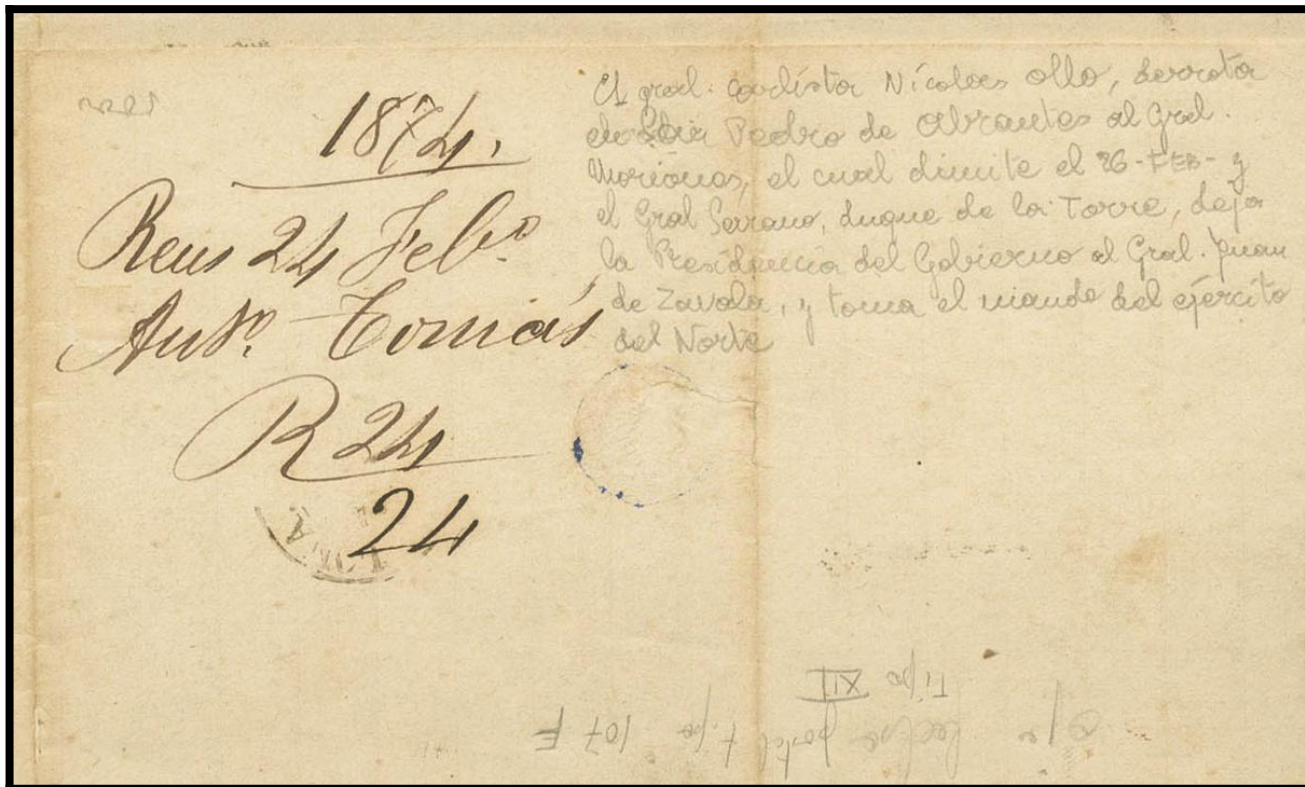 1874.
Reus 24 Feb.º
Antº. Tomás
R 24
24
El gral. carlista Nicolas Ollo, derrota
en San Pedro de Abrantes al Gral.
Moriones, el cual dimite el 26-FEB- y
el Gral Serrano, duque de la Torre, deja
la Presidencia del Gobierno al Gral. Juan
de Zavala, y toma el mando del ejército
del Norte
tipo XII
fechador postal tipo 107 F